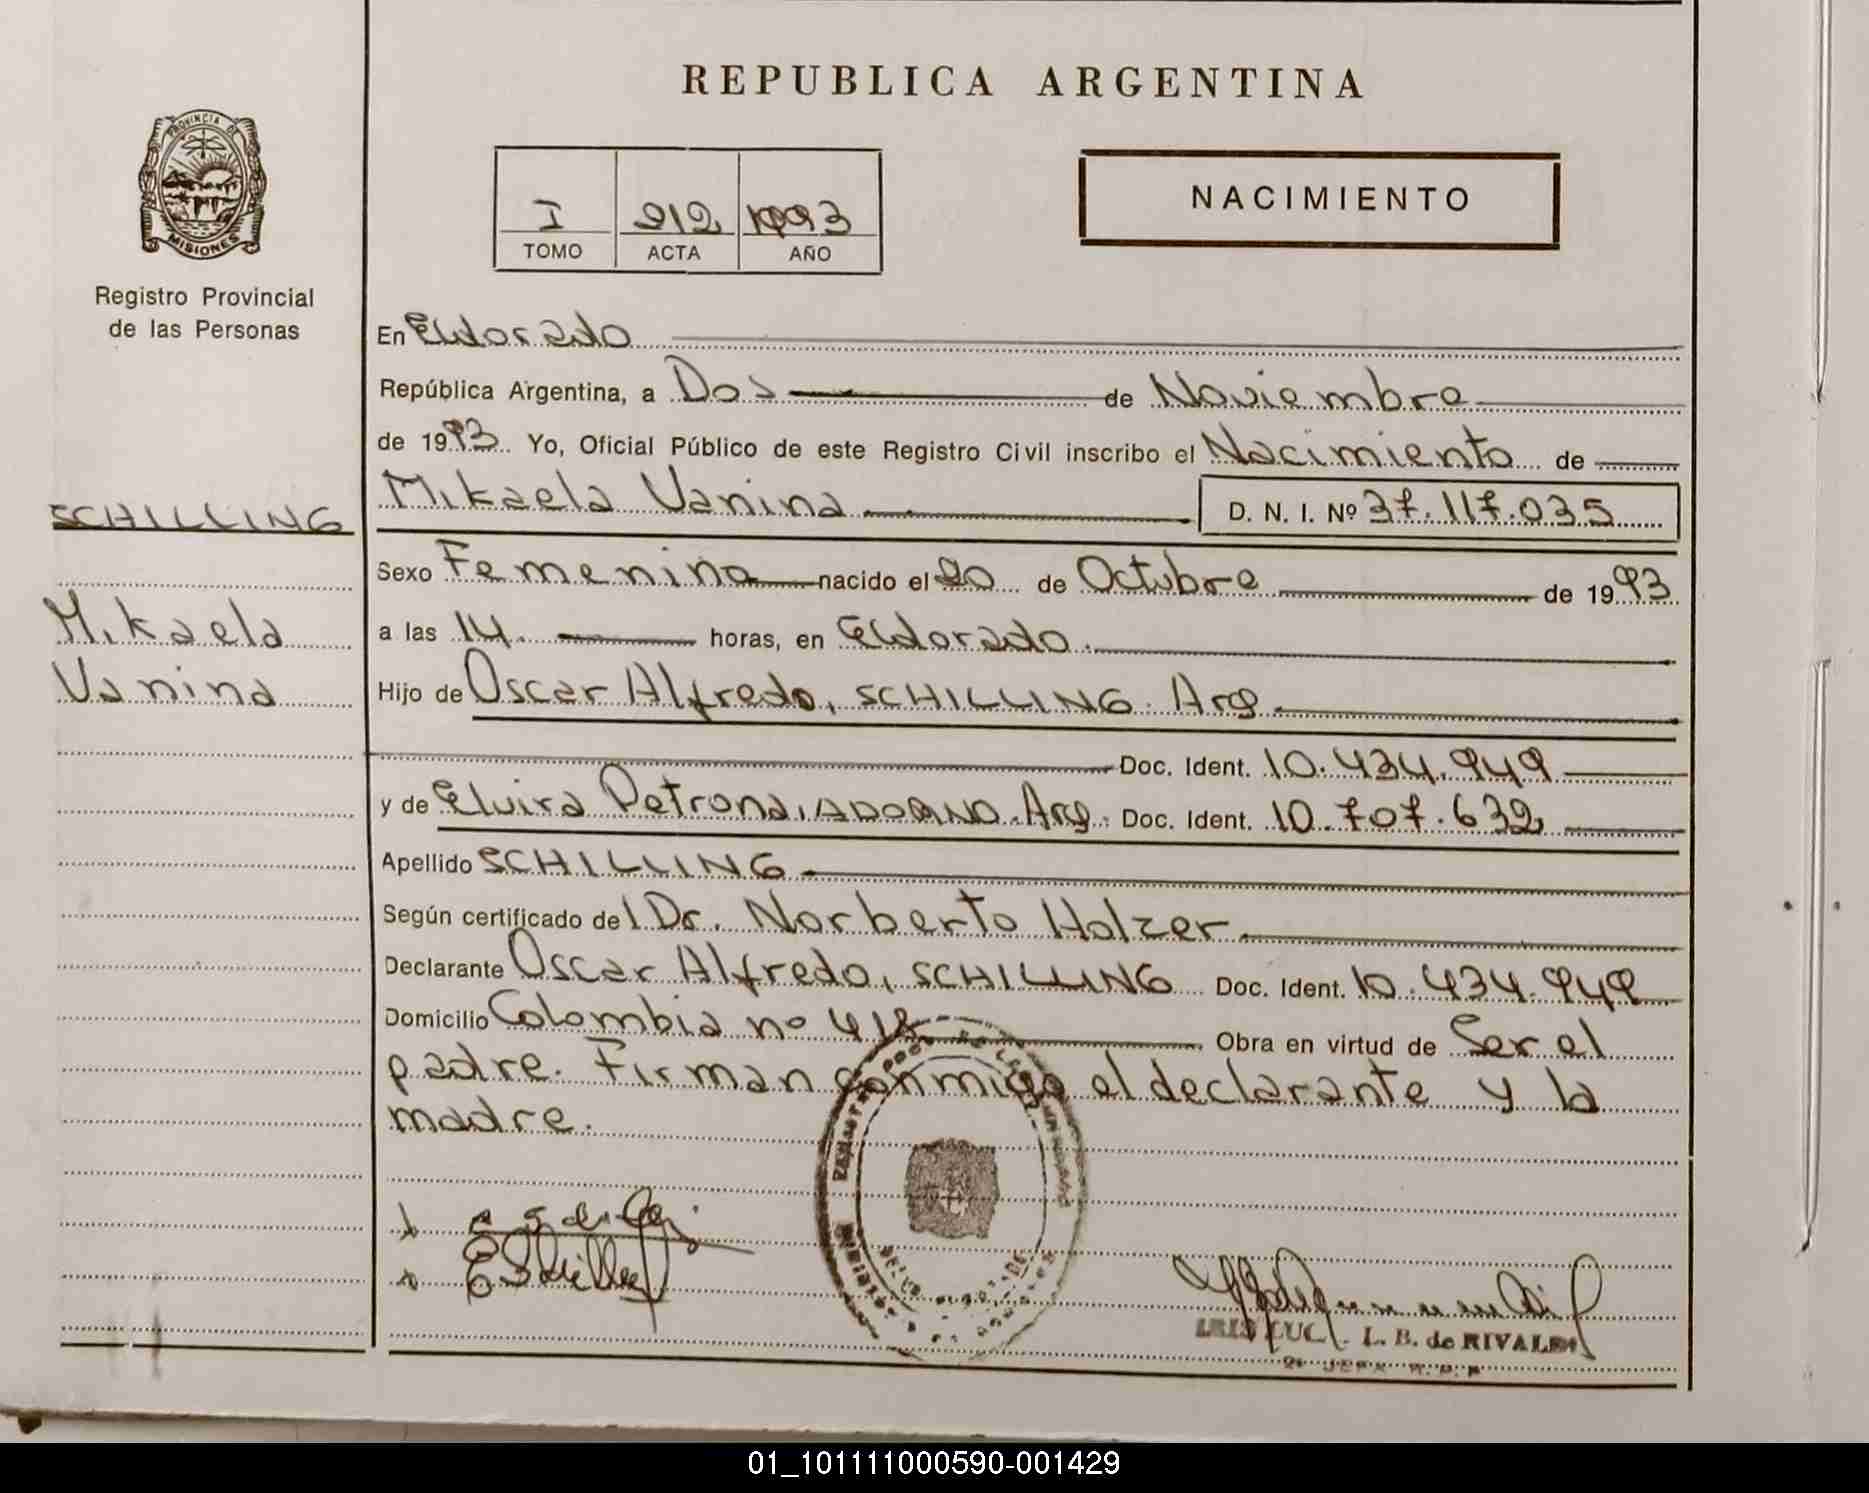 REPUBLICA ARGENTINA
PROVINCIA DE
MISIONES
Registro Provincial
de las Personas
I 212 1993
TOMO ACTA AÑO
NACIMIENTO
SCHILLING
Mikaela
Vanina
En Eldorado
República Argentina, a Dos de Noviembre
de 1993 Yo, Oficial Público de este Registro Civil inscribo el Nacimiento de
Mikaela Vanina D. N. I. Nº 37.117.035
Sexo Femenino nacido el 20 de Octubre de 1993
a las 14. horas, en Eldorado.
Hijo de Oscar Alfredo, SCHILLING. Arg.
Doc. Ident. 10.434.949
y de Elvira Petrona, ADORNO. Arg. Doc. Ident. 10.707.632
Apellido SCHILLING
Según certificado del Dr. Norberto Holzer
Declarante Oscar Alfredo, SCHILLING Doc. Ident. 10.434.949
Domicilio Colombia nº 418 Obra en virtud de Ser el
padre. Firman conmigo el declarante y la
madre.
L. B. de RIVALES
01_101111000590-001429